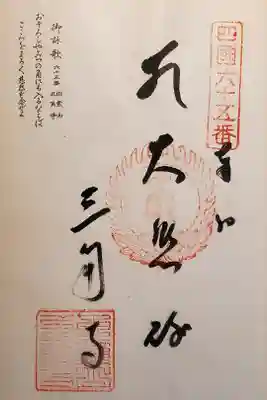 四國六十五番
大悲殿
三角寺
御詠歌
六十五番
三角寺
おそろしやみつの角にも入るならば
こころをまろく慈悲を念ぜよ